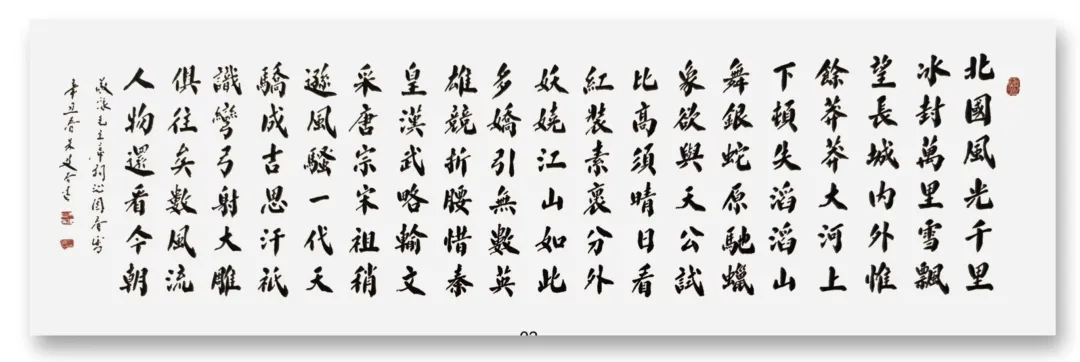 北國風光千里
冰封萬里雪飄
望長城内外惟
餘莽莽大河上
下頓失滔滔山
舞銀蛇原馳蠟
象欲與天公試
比高須晴日看
紅裝素裹分外
妖嬈江山如此
多嬌引無數英
雄競折腰惜秦
皇漢武略輸文
采唐宗宋祖稍
遜風騷一代天
驕成吉思汗祇
識彎弓射大雕
俱往矣數風流
人物還看今朝
敬錄毛主席詞沁園春雪
辛丑春